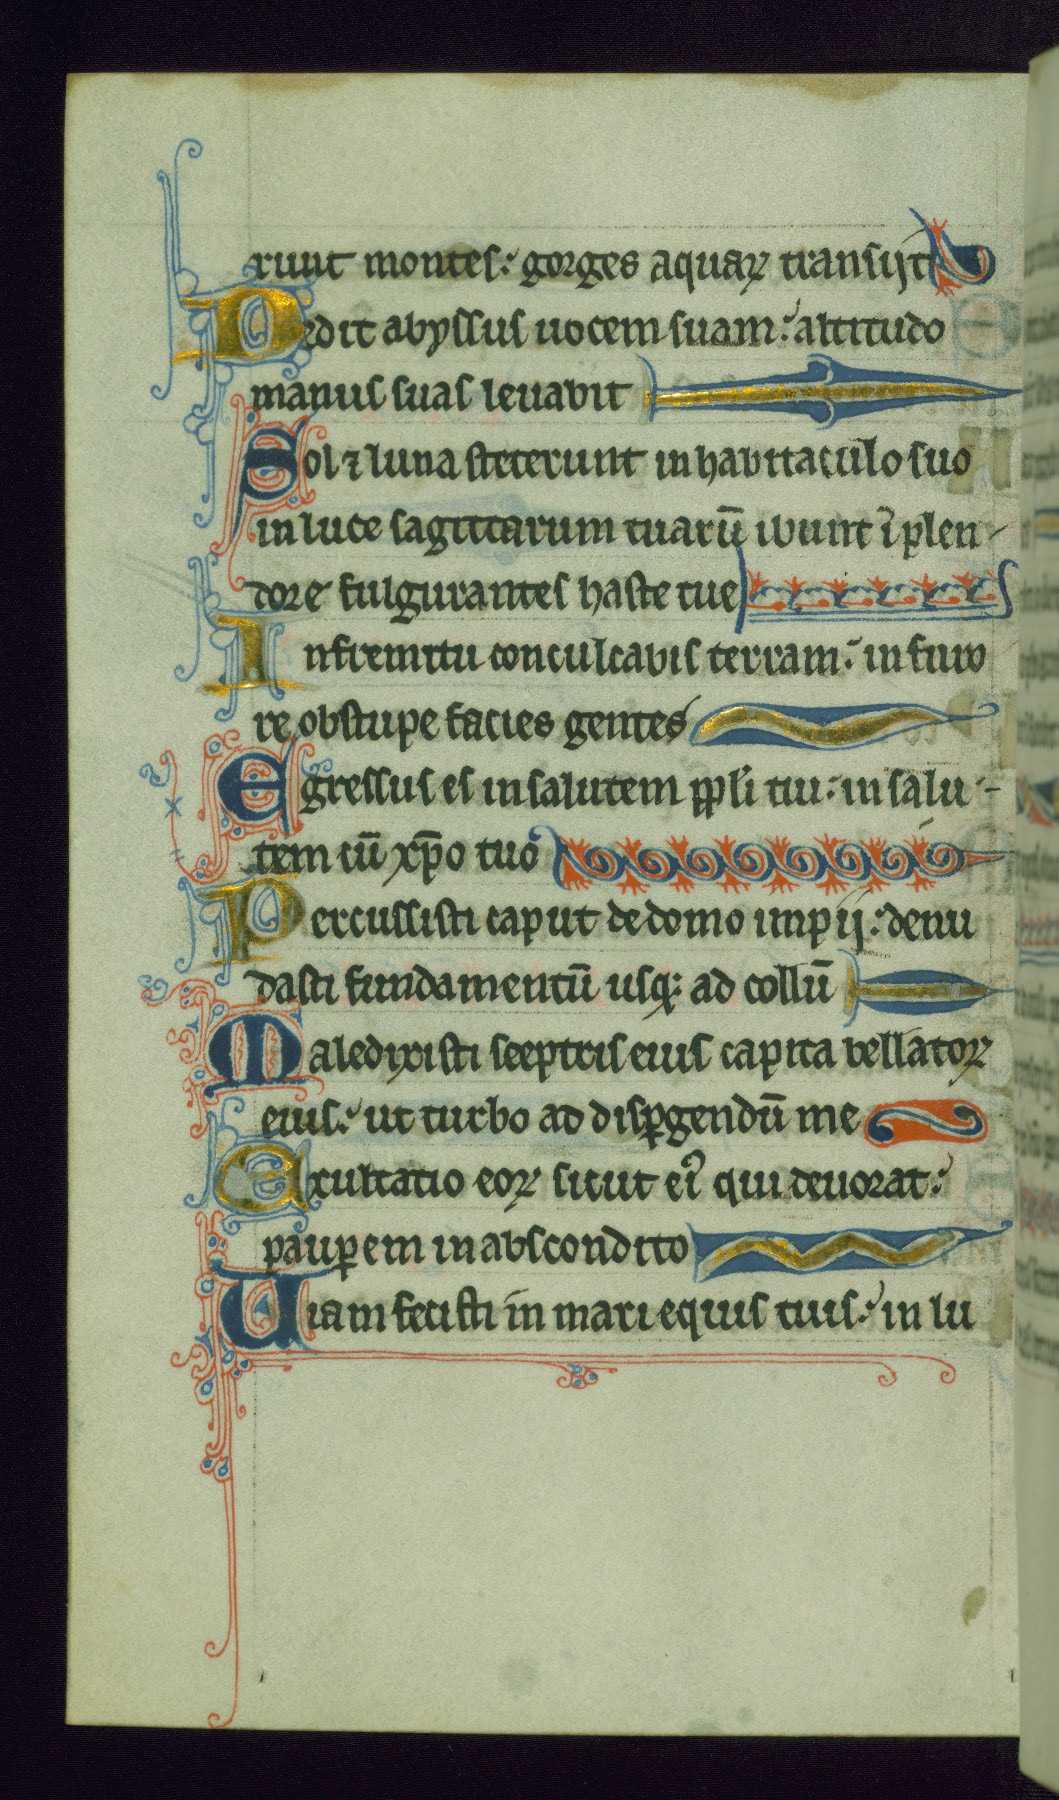 runt montes: gorges aquaꝝ transijt
Dedit abyssus uocem suam: altitudo
manus suas leuauit
Sol ⁊ luna steterunt in habitaculo suo
in luce sagittarum tuarū ibunt ī splen
dore fulgurantes haste tue
In fremitu conculcabis terram: in furo
re obstupe facies gentes
Egressus es in salutem ppl̄i tui: in salu-
tem cū xp̄o tuo
Percussisti caput de domo impij: denu
dasti fundamentū usqꝫ ad collū
Maledixisti sceptris eius capita bellatoꝝ
eius: ut turbo ad disꝑgendū me
Exultatio eoꝝ sicut ei' qui deuorat:
pauꝑem in abscondito
Uiam fecisti in mari equis tuis: in lu